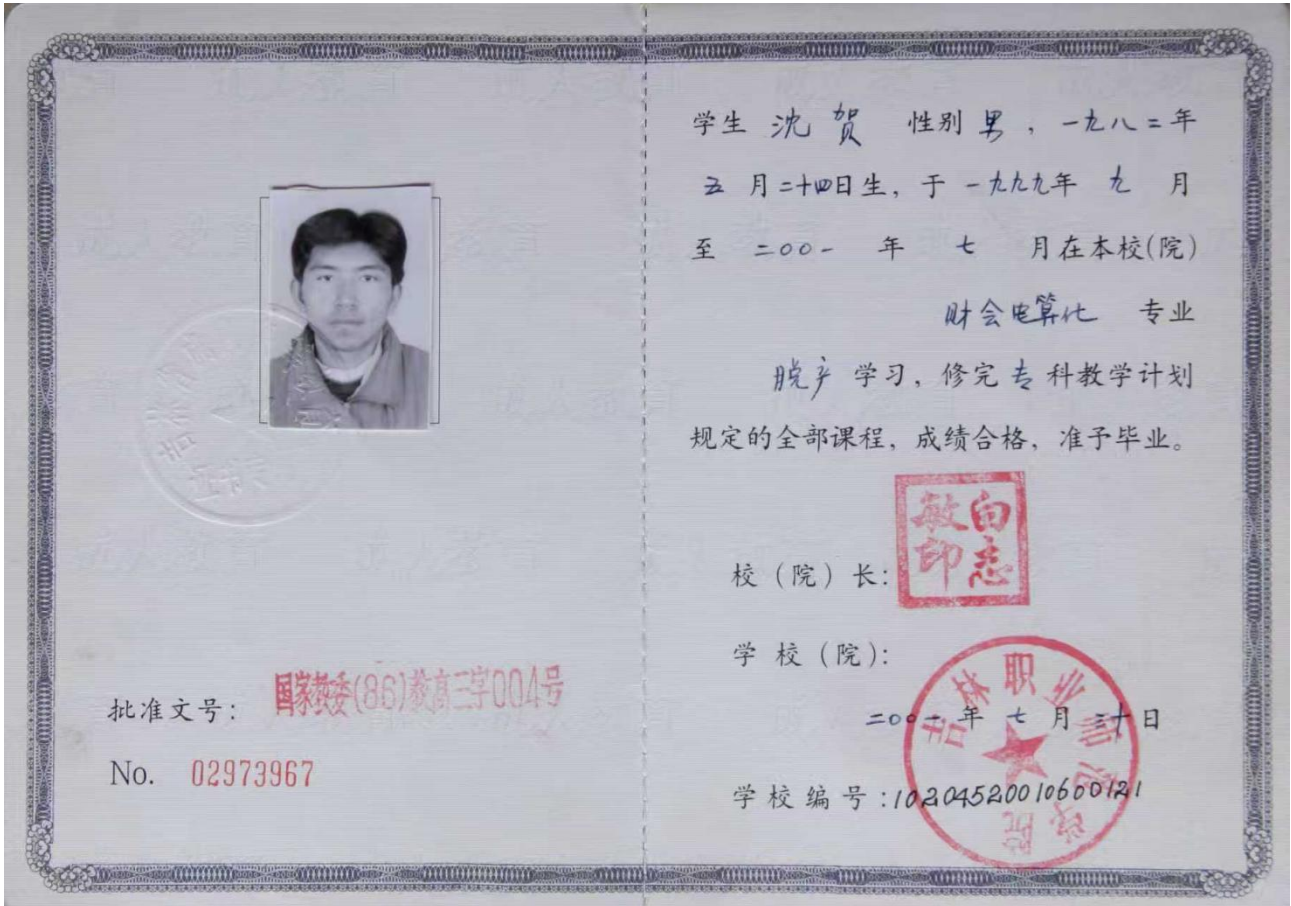 批准文号：国家教委(86)教高三字004号
No. 02973967
学生 沈贺 性别 男，一九八二年
五月二十四日生，于一九九九年 九 月
至 二〇〇一 年 七 月在本校(院)
财会电算化 专业
脱产 学习，修完专科教学计划
规定的全部课程，成绩合格，准予毕业。
校（院）长：
白志敏印
学校（院）：
吉林职业师范学院
二〇〇一年 七 月 二十日
学校编号：10204520010600121